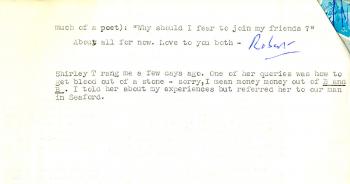 much of a poet): "Why should I fear to join my friends ?"
About all for now. Love to you both - Robert
Shirley T rang me a few days ago. One of her queries was how to
get blood out of a stone - sorry,I mean money money out of B and
B. I told her about my experiences but referred her to our man
in Seaford.